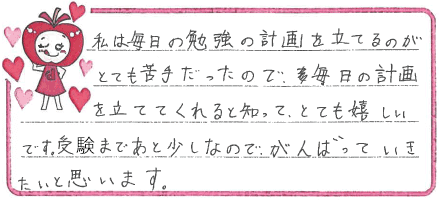 私は毎日の勉強の計画を立てるのが
とても苦手だったので、毎日の計画
を立ててくれると知って、とても嬉しい
です。受験まであと少しなので、がんばっていき
たいと思います。